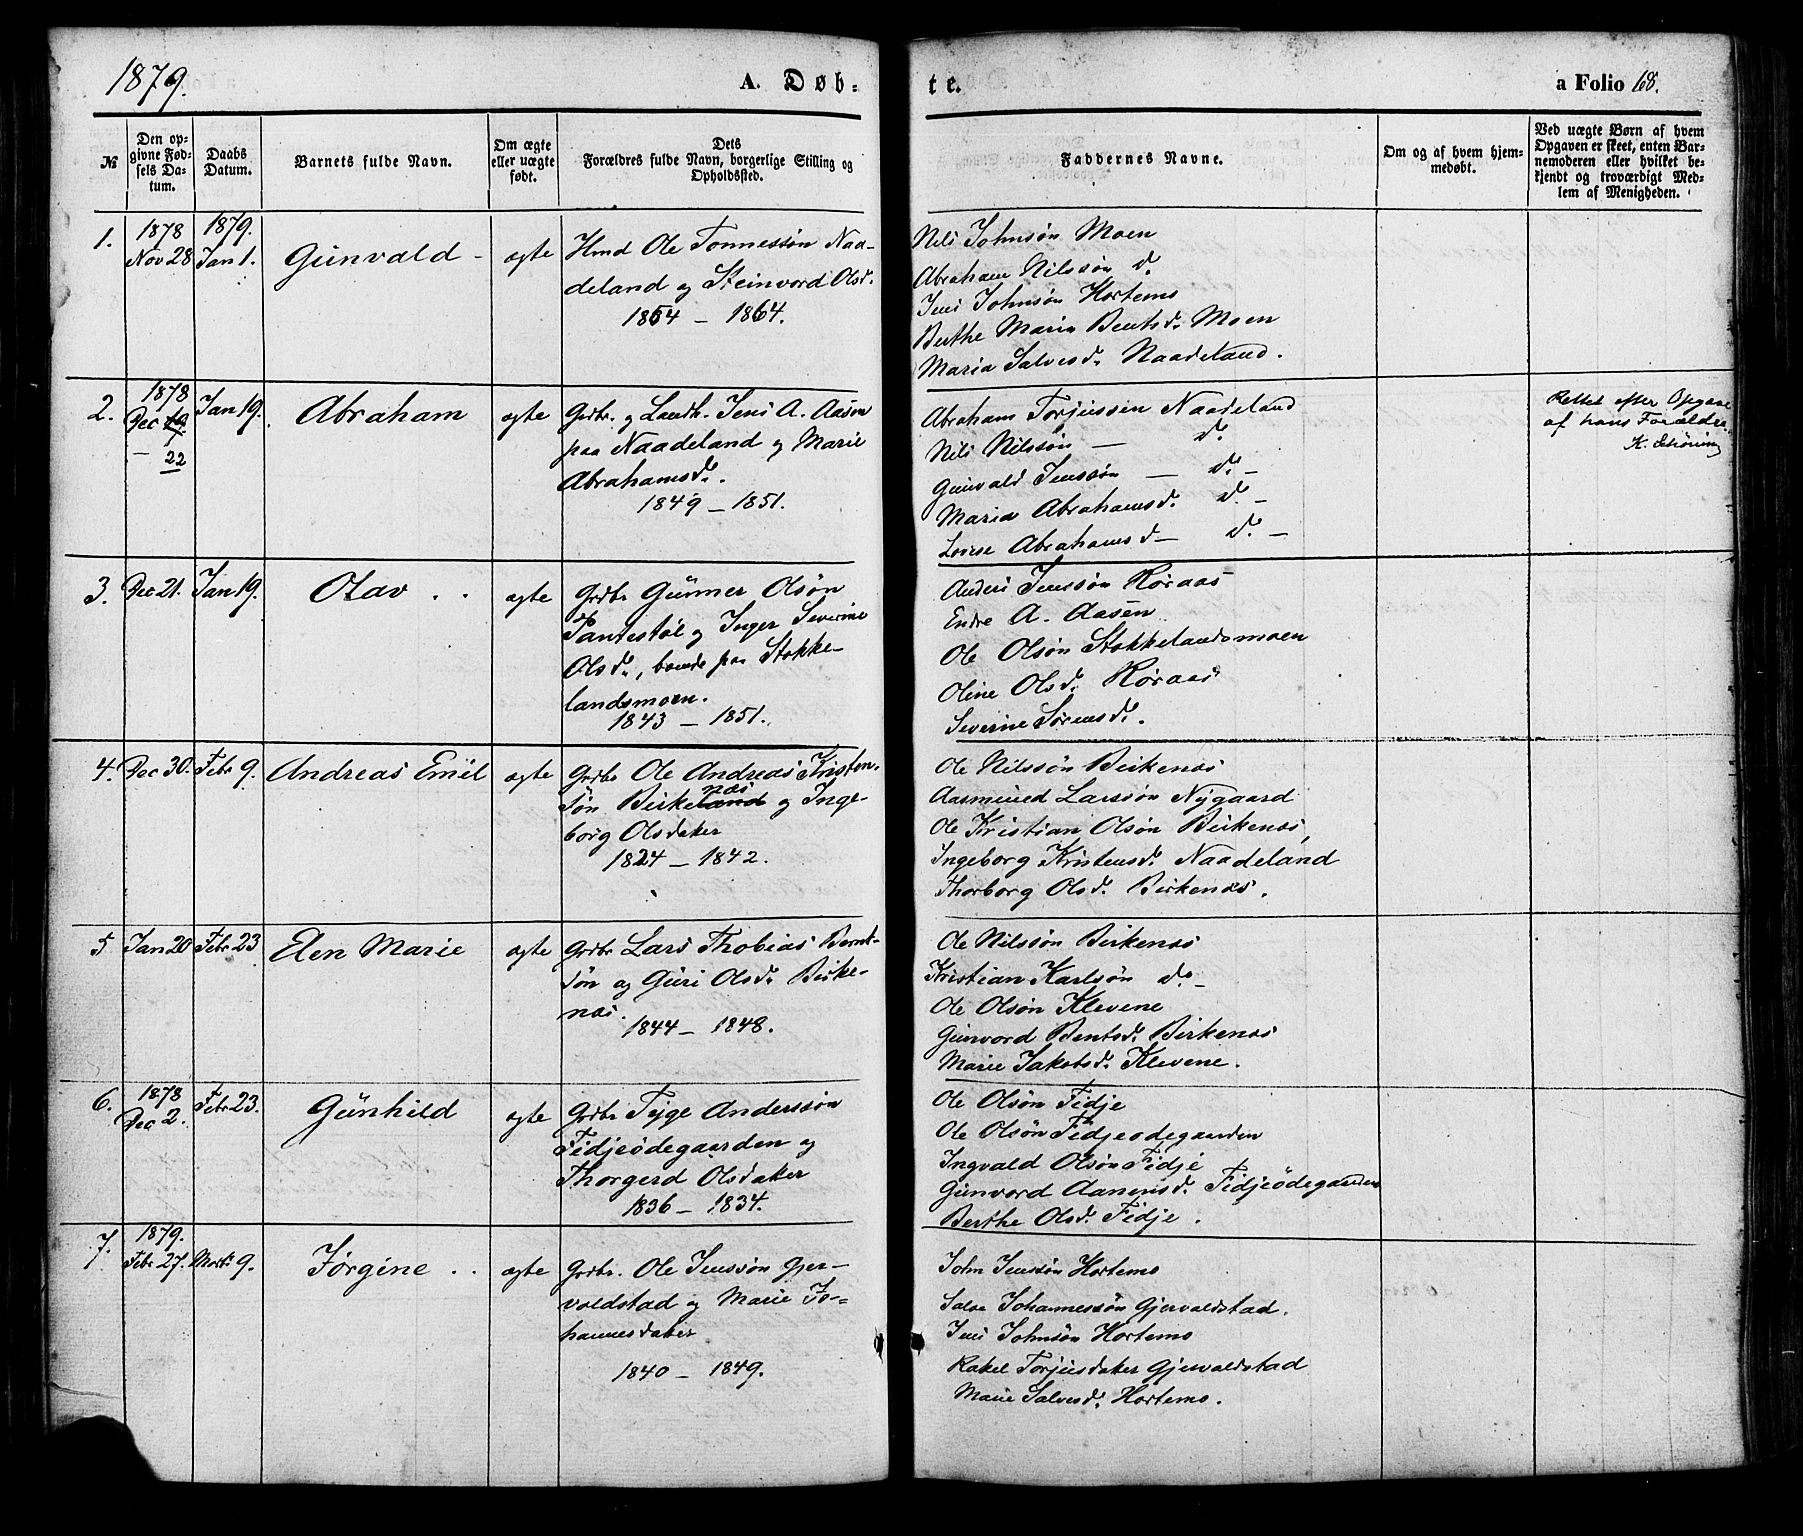 1879.
A. Døb-
te.
a Folio 68.
№
Den op-
givne Fød-
sels Da-
tum.
Daabs
Datum.
Barnets fulde Navn.
Om ægte
eller uægte
født.
Dets
Forældres fulde Navn, borgerlige Stilling og
Opholdssted.
Faddernes Navne.
Om og af hvem hjem-
medøbt.
Ved uægte Børn af hvem
Opgaven er skeet, enten Bar-
nemoderen eller hvilket be-
kjendt og troværdigt Med-
lem af Menigheden.
1.
1878
Nov 28
1879.
Jan 1.
Gunvald
ægte
Hmd Ole Tønnessøn Naa-
deland og Steinvord Olsd.
1854 – 1864.
Nils Johnsøn Moen
Abraham Nilssøn d.
Jens Johnsøn Hortemo
Berthe Maria Bentsd. Moen
Maria Salvesd. Naadeland.
2.
1878
Dec 19
– 22
Jan 19.
Abraham
ægte
Grdbr. og Landh. Jens A. Aasen
paa Naadeland og Marie
Abrahamsd.
1849 – 1851.
Abraham Torjussen Naadeland
Nils Nilssøn – d.
Gunvald Jenssøn – d. –
Maria Abrahamsd. d. –
Lovise Abrahamsd – d. –
Rettet efter Opgave
af hans Forældre.
K. Schöning
3.
Dec 21.
Jan 19.
Olav . .
ægte
Grdbr Gunner Olsøn
Tantestøl og Inger Severine
Olsd., boende paa Stokke-
landsmoen.
1843 – 1851.
Anders Jenssøn Røraas
Endre A. Aasen
Ole Olsøn Stokkelandsmoen
Oline Olsd. Røraas
Severine Sørensd.
4.
Dec 30.
Febr 9.
Andreas Emil
ægte
Grdbr Ole Andreas Kristen-
søn Birkeland næs og Inge-
borg Olsdatter
1824 – 1842.
Ole Nilssøn Birkenæs
Aasmund Larssøn Nygaard
Ole Kristian Olsøn Birkenæs,
Ingeborg Kristensd. Naadeland
Thorborg Olsd. Birkenæs.
5
Jan 20
Febr 23
Elen Marie
ægte
Grdbr Lars Thobias Bernt-
søn og Guri Olsd. Birke-
næs.
1844 – 1848.
Ole Nilssøn Birkenæs
Kristian Karlsøn d. –
Ole Olsøn Klevene
Gunvord Bentsd. Birkenæs
Marie Jakobsd. Klevene.
6.
1878
Dec 2.
Febr 23.
Gunhild
ægte
Grdbr Tyge Anderssøn
Fidjeødegaarden og
Thorgerd Olsdatter
1836 – 1834.
Ole Olsøn Fidje
Ole Olsøn Fidjeødegaarden
Ingvald Olsøn Fidje
Gunvord Aanensd. Fidjeødegaarden
Berthe Olsd. Fidje.
7.
1879.
Febr 27.
Marts 9.
Jørgine . .
ægte
Grdbr. Ole Jenssøn Gjer-
voldstad og Marie Jo-
hannesdatter
1840 – 1849.
John Jenssøn Hortemo
Salve Johannessøn Gjervoldstad.
Jens Johnsøn Hortemo
Rakel Torjusdatter Gjervoldstad
Marie Salvesd. Hortemo.